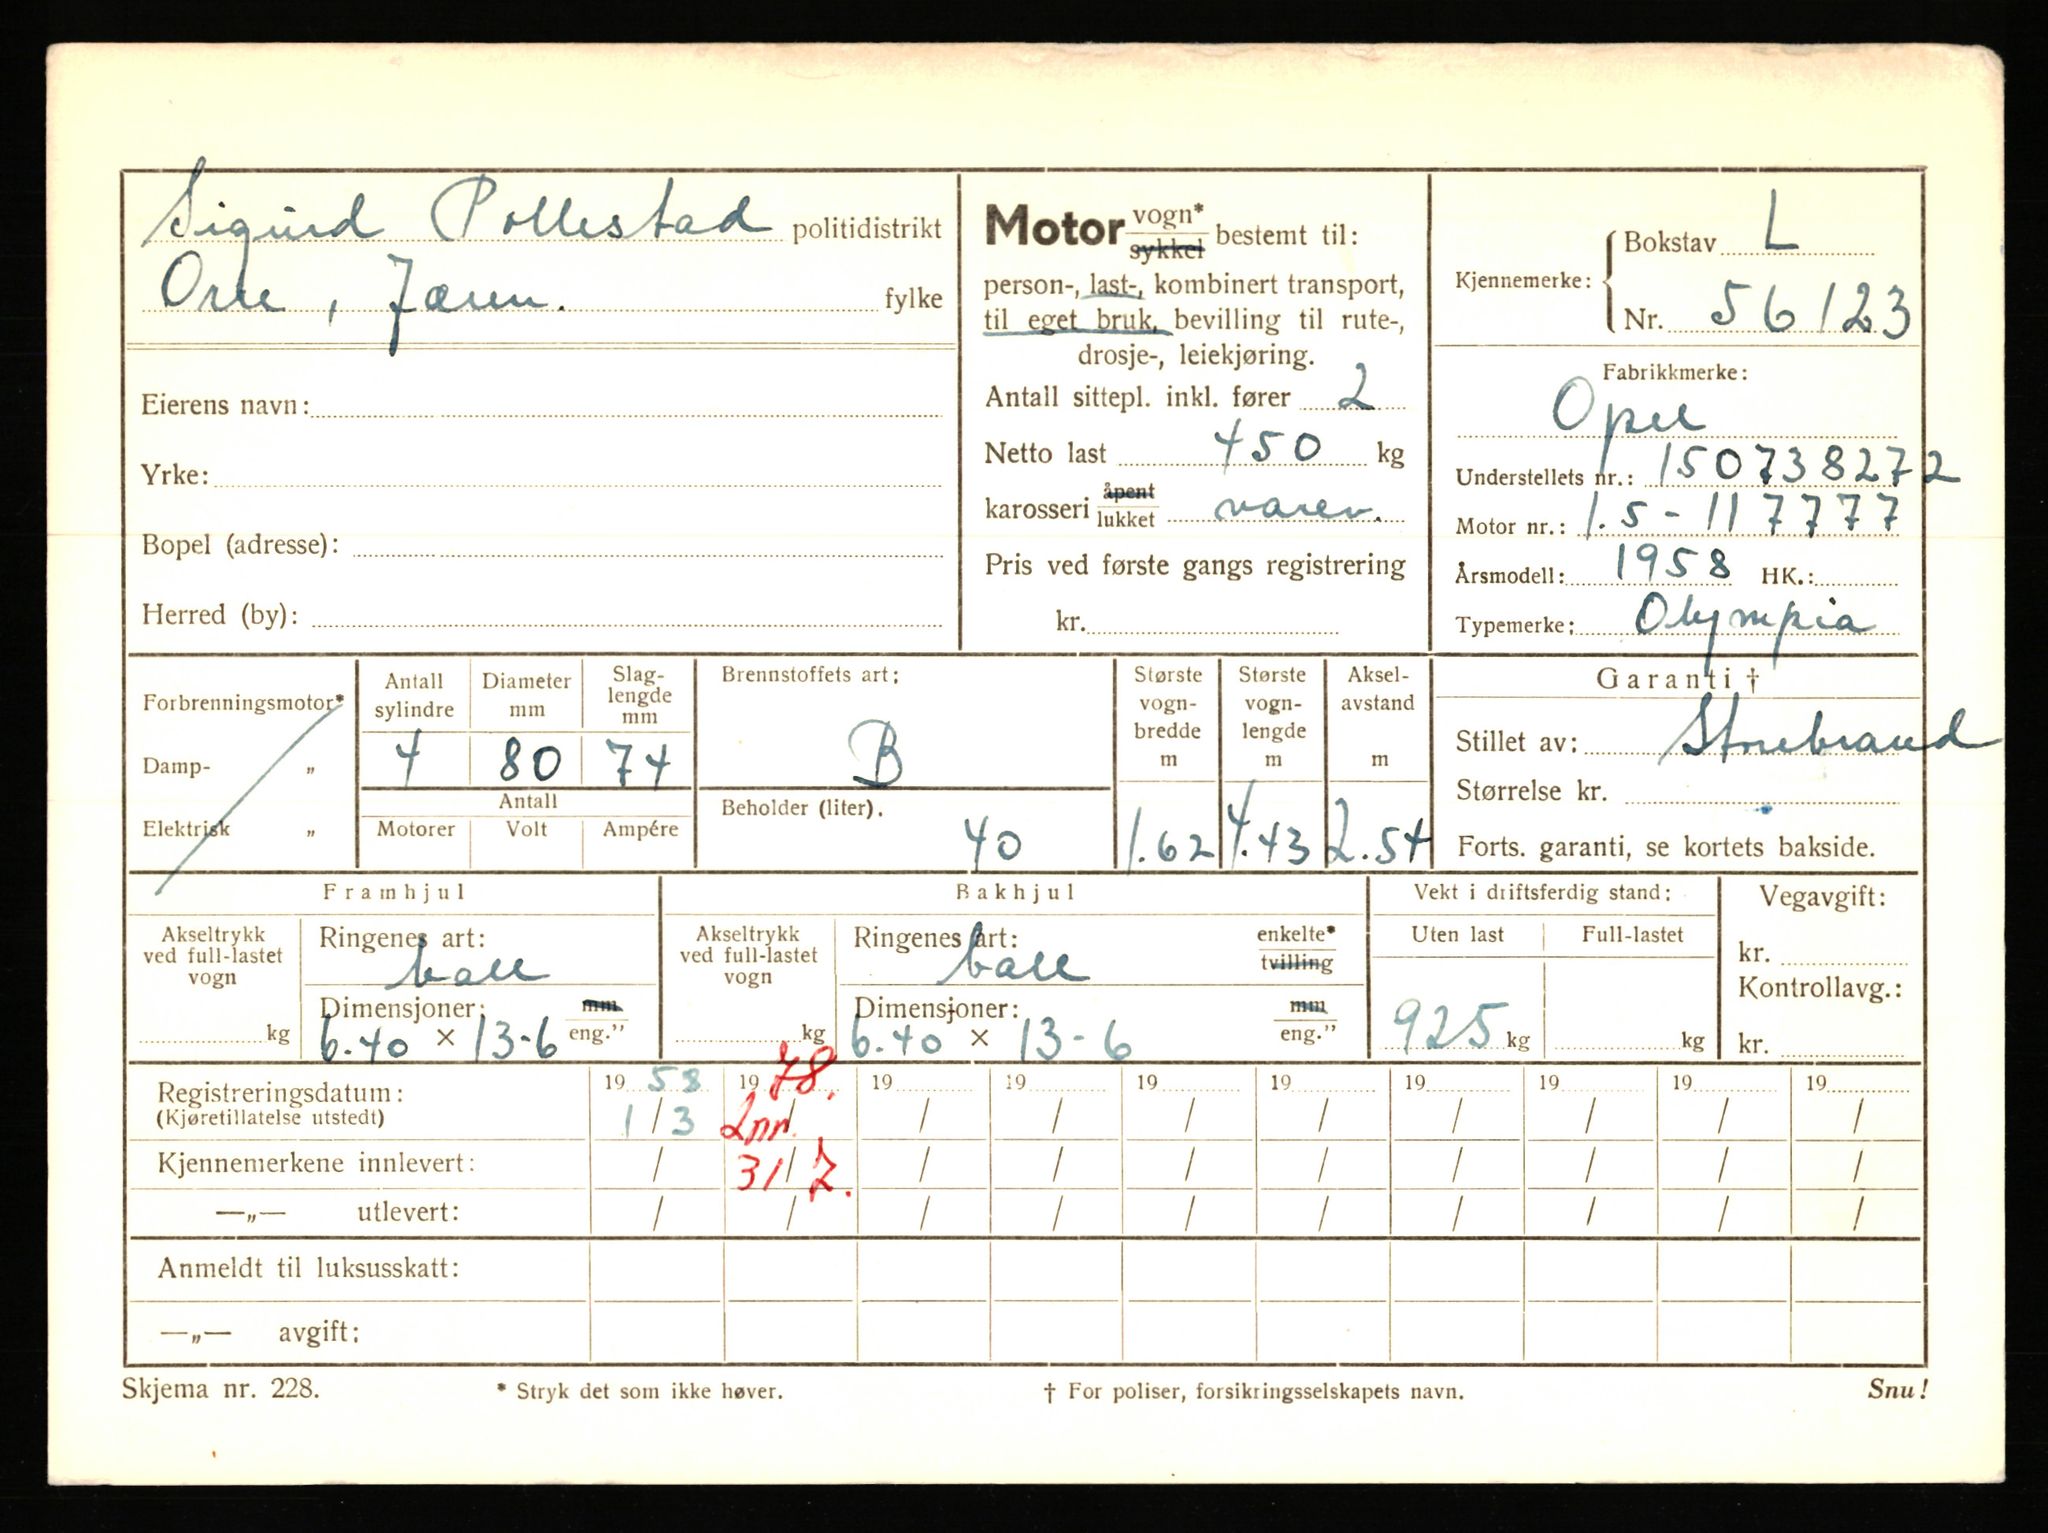 Sigurd Pollestad politidistrikt
Orre, Jæren. fylke
Eierens navn:
Yrke:
Bopel (adresse):
Herred (by):
Motor vogn* sykkel bestemt til:
person-, last-, kombinert transport,
til eget bruk, bevilling til rute-,
drosje-, leiekjøring.
Antall sittepl. inkl. fører 2
Netto last 450 kg
karosseri åpent lukket varev.
Pris ved første gangs registrering
kr.
Kjennemerke: Bokstav L
Nr. 56123
Fabrikkmerke:
Opel
Understellets nr.: 150738272
Motor nr.: 1.5-117777
Årsmodell: 1958 HK.:
Typemerke: Olympia
Forbrenningsmotor*
Damp- „
Elektrisk „
Antall sylindre Diameter mm Slag-lengde mm
4 80 74
Antall
Motorer Volt Ampére
Brennstoffets art:
B
Beholder (liter).
40
Største vogn-bredde m
1.62
Største vogn-lengde m
4.43
Aksel-avstand m
2.54
Garanti †
Stillet av: Storebrand
Størrelse kr.
Forts. garanti, se kortets bakside.
Framhjul
Akseltrykk ved full-lastet vogn
kg
Ringenes art:
ball
Dimensjoner: mm
6.40 × 13-6 eng.”
Bakhjul
Akseltrykk ved full-lastet vogn
kg
Ringenes art: enkelte*
ball tvilling
Dimensjoner: mm
6.40 × 13-6 eng.”
Vekt i driftsferdig stand:
Uten last Full-lastet
925 kg kg
Vegavgift:
kr.
Kontrollavg.:
kr.
Registreringsdatum: 19 58 19 78. 19 19 19 19 19 19 19 19
(Kjøretillatelse utstedt) 1/3 Inn. / / / / / / / / /
Kjennemerkene innlevert: / 31/7. / / / / / / / /
—„— utlevert: / / / / / / / / / /
Anmeldt til luksusskatt:
—„— avgift:
Skjema nr. 228. * Stryk det som ikke høver. † For poliser, forsikringsselskapets navn. Snu!